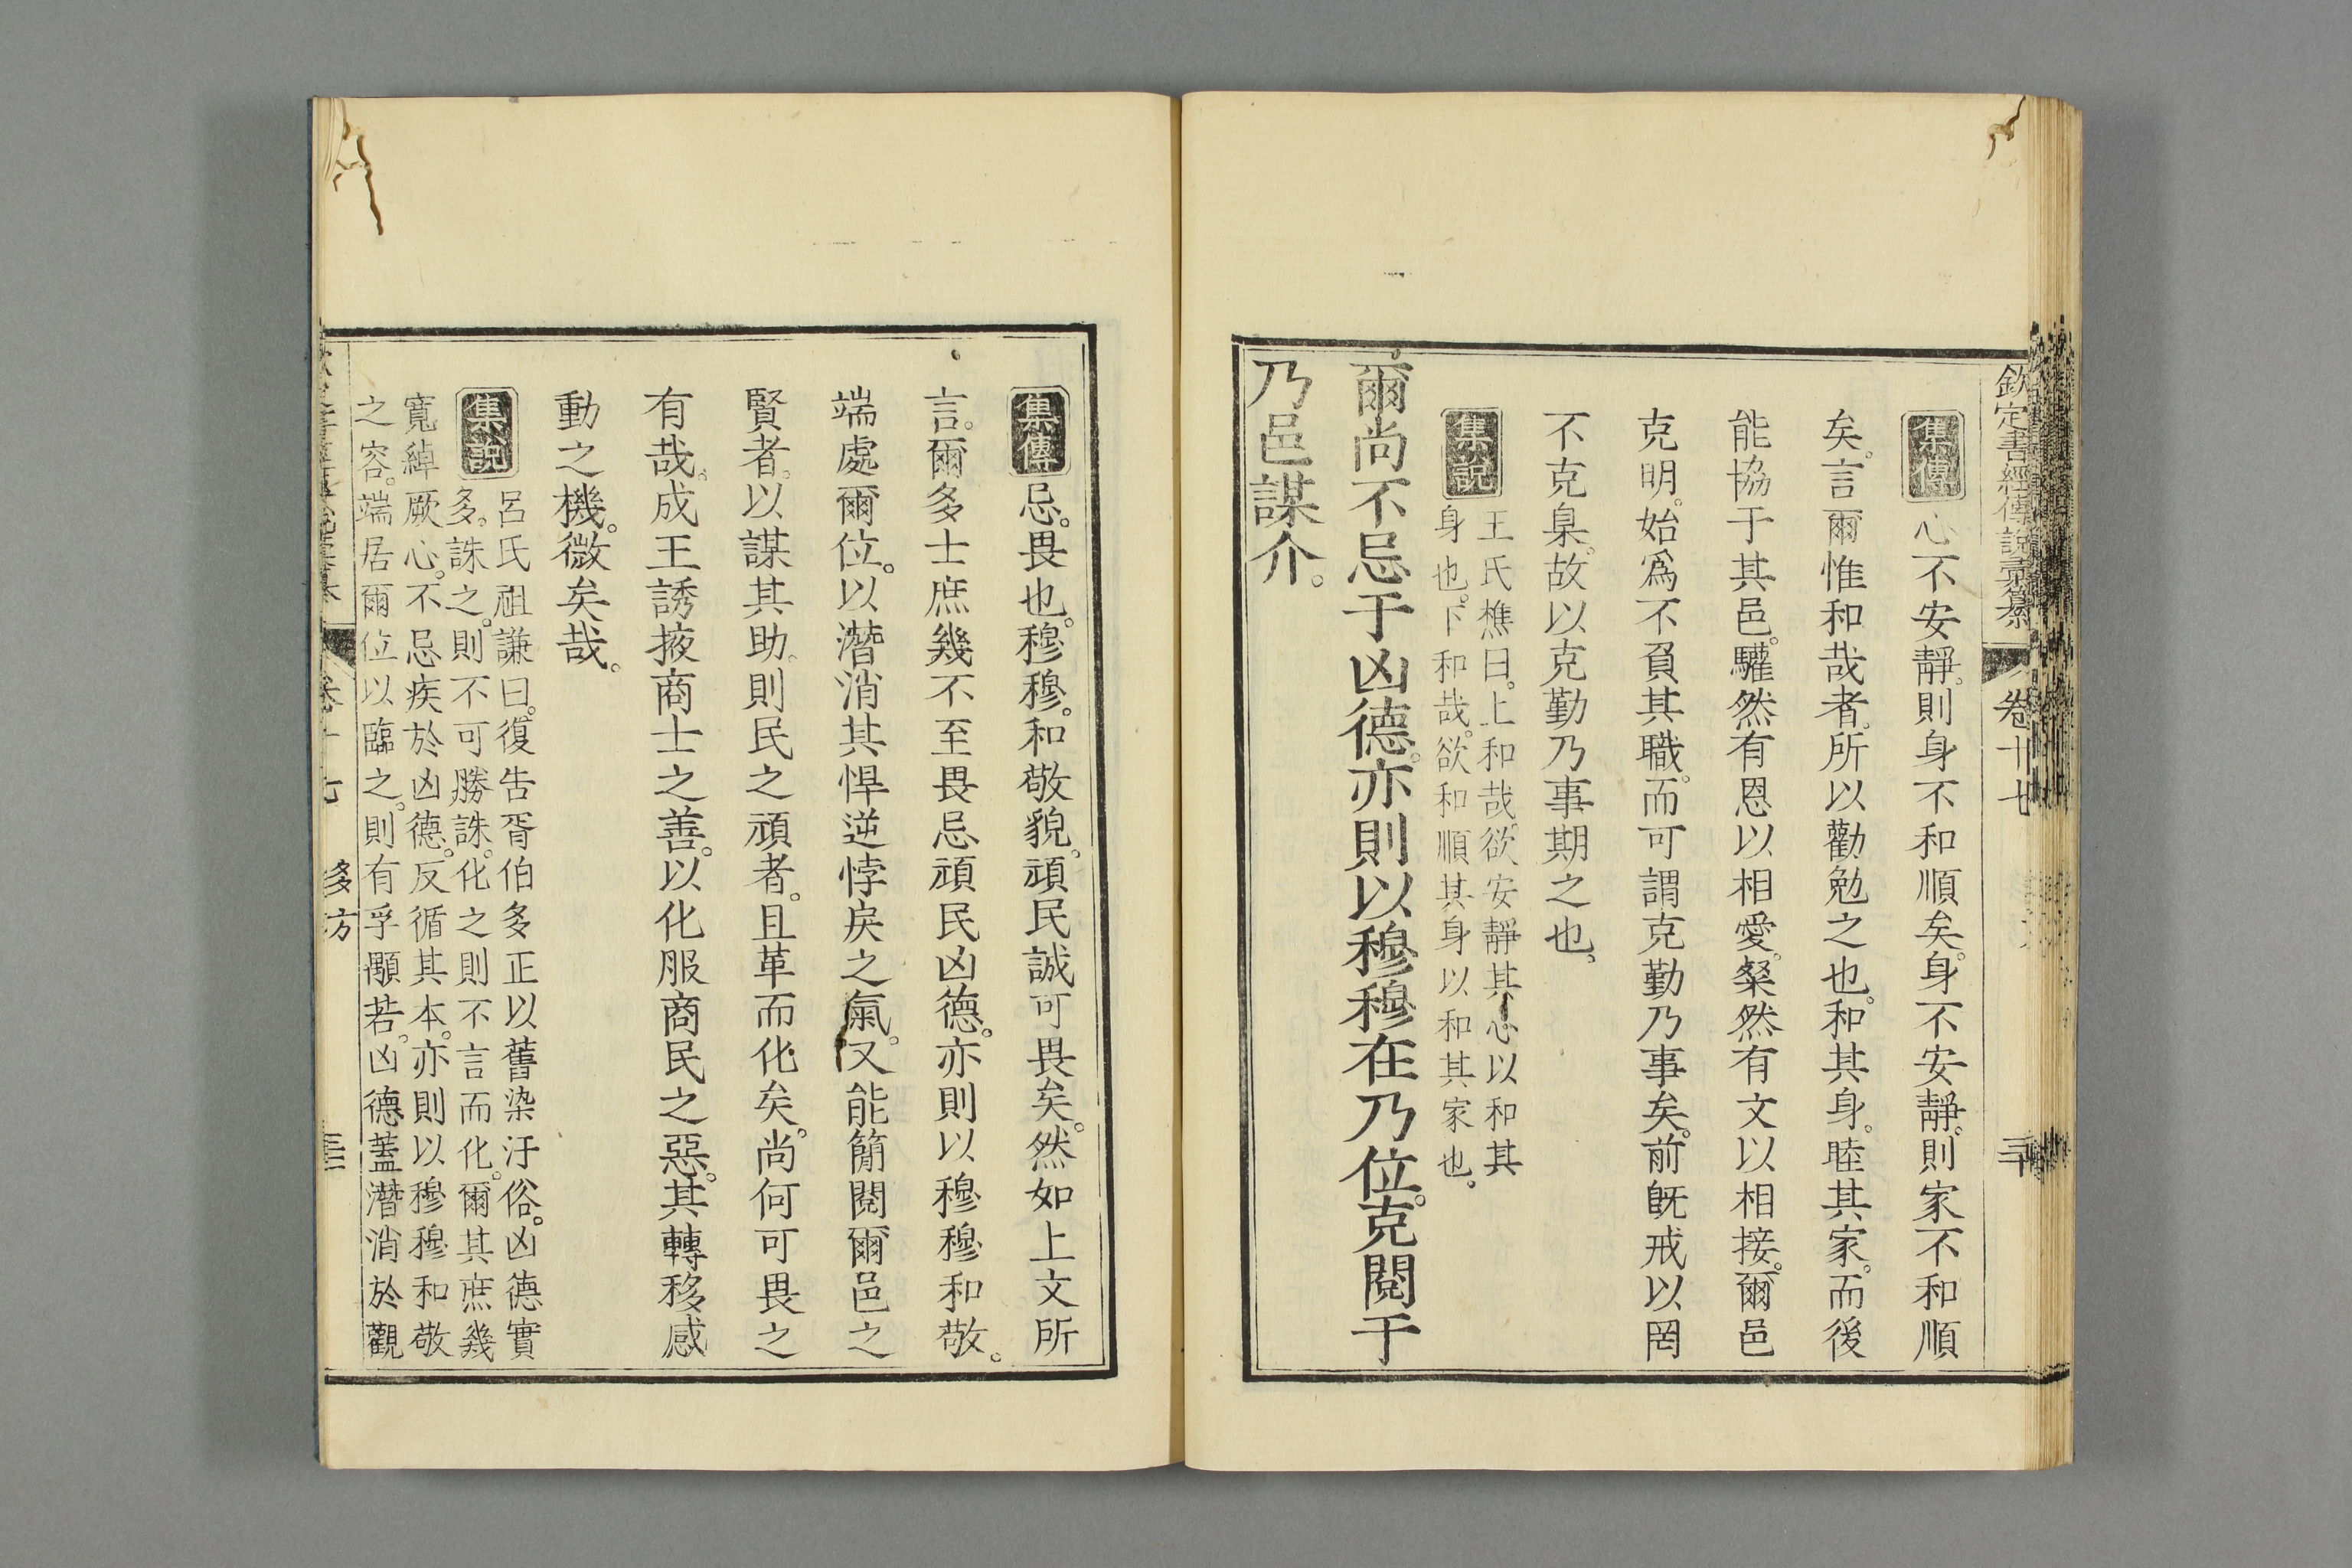 欽定書經傳說彙纂 卷十七
集傳 心不安靜。則身不和順矣。身不安靜。則家不和順
矣。言爾惟和哉者。所以勸勉之也。和其身。睦其家。而後
能協于其邑。驩然有恩以相愛。粲然有文以相接。爾邑
克明。始爲不負其職。而可謂克勤乃事矣。前旣戒以罔
不克臬。故以克勤乃事期之也。
集說 王氏樵曰。上和哉。欲安靜其心以和其
身也。下和哉。欲和順其身以和其家也。
爾尚不忌于凶德。亦則以穆穆在乃位。克閱于
乃邑謀介。
集傳 忌。畏也。穆穆。和敬貌。頑民誠可畏矣。然如上文所
言。爾多士庶幾不至畏忌頑民凶德。亦則以穆穆和敬。
端處爾位。以潛消其悍逆悖戾之氣。又能簡閱爾邑之
賢者。以謀其助。則民之頑者。且革而化矣。尚何可畏之
有哉。成王誘掖商士之善。以化服商民之惡。其轉移感
動之機。微矣哉。
集說 呂氏祖謙曰。復告胥伯多正以舊染汙俗。凶德實
多。誅之。則不可勝誅。化之則不言而化。爾其庶幾
寬綽厥心。不忌疾於凶德。反循其本。亦則以穆穆和敬
之容。端居爾位以臨之。則有孚顒若。凶德蓋潛消於觀
卷十七 多方